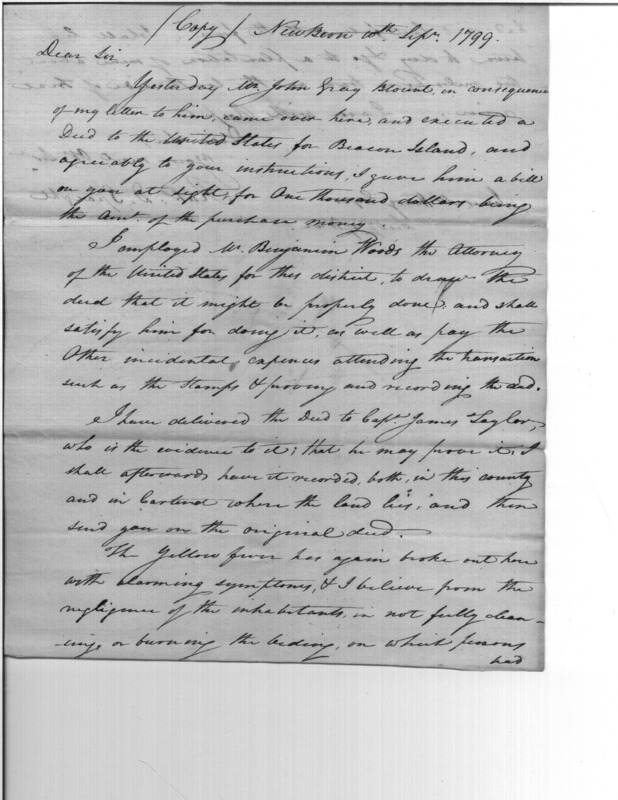 (Copy) Newbern 10th. Sepr. 1799.
Dear Sir,
Yesterday Mr. John Gray Blount, in consequence
of my letter to him, came over here, and executed a
Deed to the United States for Beacon Island, and
agreeably to your instructions, I gave him a bill
on you at sight, for One thousand dollars being
the Amt. of the purchase money.
I employed Mr. Benjamin Woods the Attorney
of the United States for this district, to draw the
deed that it might be properly done: and shall
satisfy him for doing it, as well as pay the
Other incidental, expences attending the transaction
such as the Stamps & proving and recording the deed.
I have delivered the Deed to Capt. James Taylor,
who is the evidence to it; that he may prove it; I
shall afterwards have it recorded, both, in this county
and in Carteret where the land lies, and then
send you on the original deed.
The Yellow fever has again broke out here
with alarming symptoms, & I believe from the
negligence of the inhabitants, in not fully clean-
-ing, or burning the beding, on which persons
had